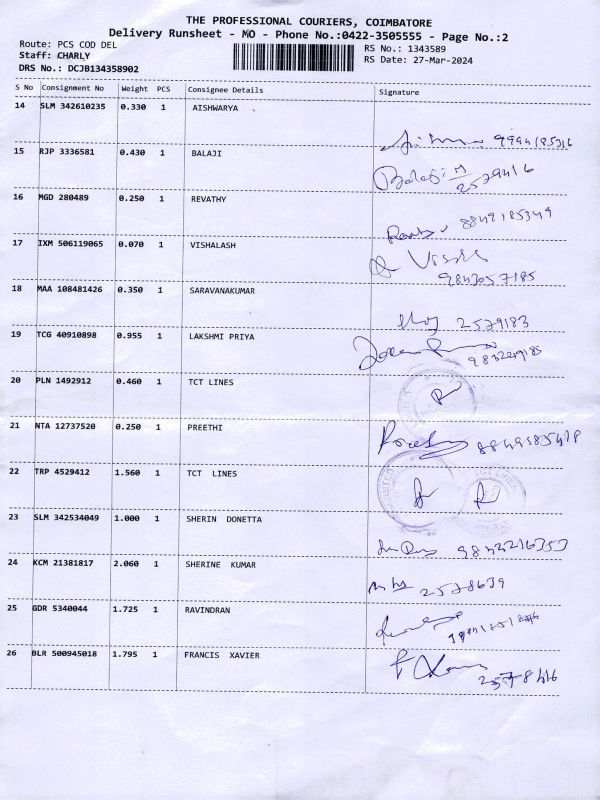 THE PROFESSIONAL COURIERS, COIMBATORE
Delivery Runsheet - MO - Phone No.:0422-3505555 - Page No.:2
Route: PCS COD DEL
RS No.: 1343589
Staff: CHARLY
RS Date: 27-Mar-2024
DRS No.: DCJB134358902
S No Consignment No Weight PCS Consignee Details Signature
14 SLM 342610235 0.330 1 AISHWARYA
15 RJP 3336581 0.430 1 BALAJI
Balaji M
2579416
16 MGD 280489 0.250 1 REVATHY
8849185349
17 IXM 506119065 0.070 1 VISHALASH
9843057185
18 MAA 108481426 0.350 1 SARAVANAKUMAR
2579183
19 TCG 40910898 0.955 1 LAKSHMI PRIYA
20 PLN 1492912 0.460 1 TCT LINES
21 NTA 12737520 0.250 1 PREETHI
22 TRP 4529412 1.560 1 TCT LINES
23 SLM 342534049 1.000 1 SHERIN DONETTA
9842216353
24 KCM 21381817 2.060 1 SHERINE KUMAR
2578639
25 GDR 5340044 1.725 1 RAVINDRAN
26 BLR 500945018 1.795 1 FRANCIS XAVIER